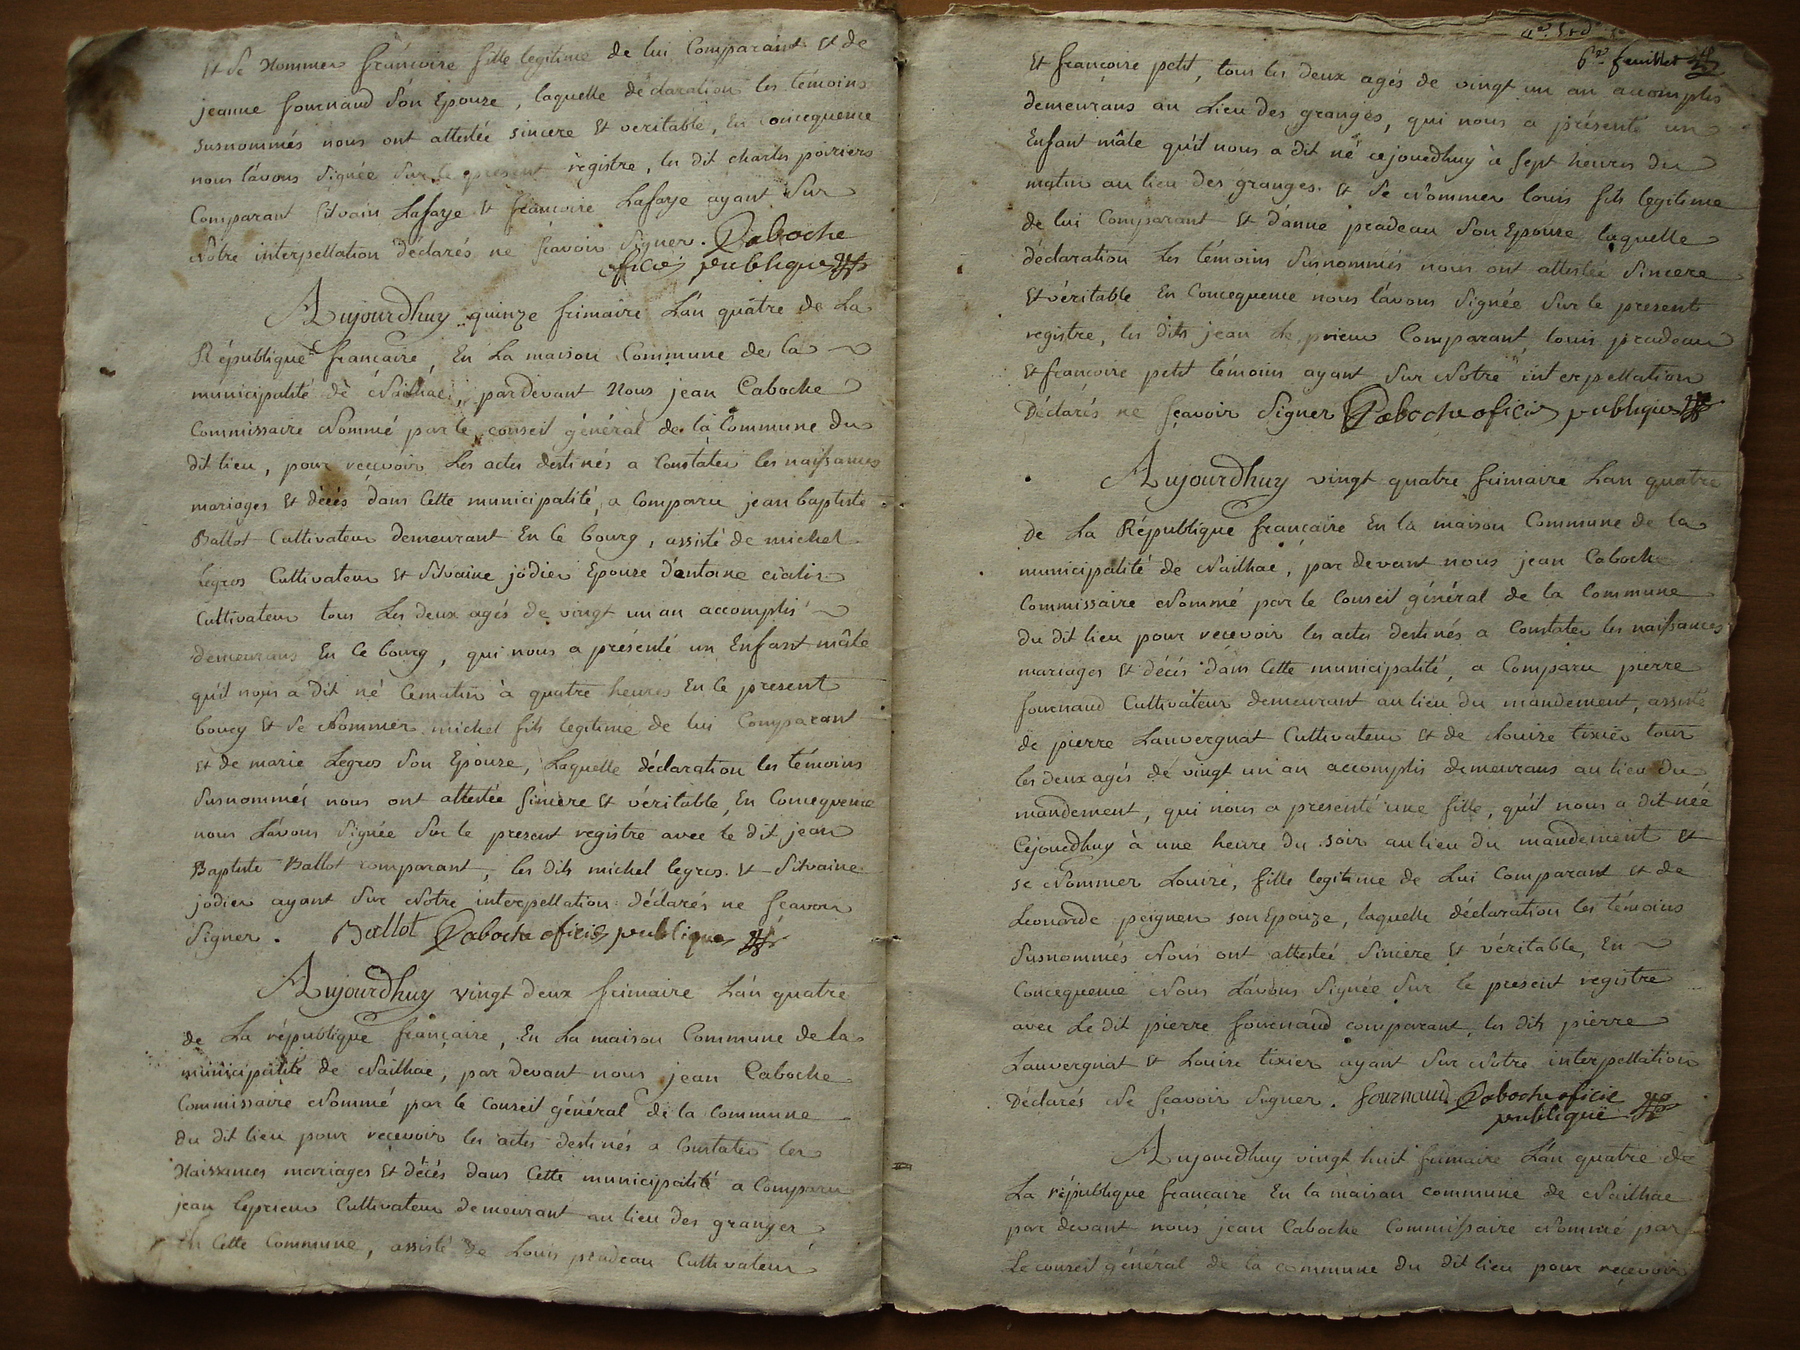 Et Se Nommer françoise fille legitime de lui Comparant Et de
jeanne fournaud Son Epouze, laquelle déclaration les témoins
susnommés nous ont attestée sincere Et veritable, En Concequence
nous lávons Signée Sur le present régistre, les dit charles poiriers
Comparant Silvain Lafaye Et françoise Lafaye ayant Sur
Nôtre interpellation déclarés ne Sçavoir Signer. Caboche
oficié publique
Aujourdhuy quinze frimaire L'an quatre de La
République francaire, En La maison Commune de la
municipalité de Nailhac, pardevant Nous jean Caboche
Commissaire Nommé par le conseil général de la Commune du
dit lieu, pour recevoir Les actes destinés a Constater les naissances
mariages Et décés dans Cette municipalité, a Comparu jean baptiste
Ballot Cultivateur demeurant En Ce bourg, assisté de michel
Legros Cultivateur Et Silvaine jódier Epouze d'antoine
Cultivateur tous Les deux agés de vingt un an accomplis
demeurans En Ce bourg, qui nous a présenté un Enfant mâle
qu'il nous a dit né Cematin à quatre heures En Ce present
bourg Et Se Nommer michel fils legitime de lui Comparant
Et de marie Legros Son Epouze, Laquelle déclaration les témoins
Susnommés nous ont attestée Sincère Et véritable, En Concequence
nous Lávons Signée Sur le present registre avec le dit jean
Baptiste Ballot comparant, les dits michel legros Et Silvaine
jódier ayant Sur Nôtre interpellation déclarés ne Sçavoir
Signer. Ballot Caboche oficié publique
Aujourdhuy vingt deux frimaire L'an quatre
de La république françaire, En La maison Commune de la
municipalité de Nailhac, par devant nous jean Caboche
Commissaire Nommé par le Conseil général de la commune
du dit lieu pour recevoir les actes destinés a Constater les
Naissances mariages Et décés dans Cette municipalité a Comparu
jean leprieur Cultivateur demeurant au lieu des granges
En Cette Commune, assisté de Louis pradeau Cultivateur
6e feuillet
Et françoise petit, tous les deux agés de vingt un an accomplis
demeurans au Lieu des granges, qui nous a présenté un
Enfant mâle qu'il nous a dit né cejourdhuy à Sept heures du
matin au lieu des granges. Et Se Nommer louis fils legitime
de lui Comparant Et d'anne pradeau Son Epouze laquelle
déclaration Les témoins Susnommés nous ont attestée Sincere
Et véritable En Concequence nous l'avons Signée Sur le present
registre, les dits jean le prieur Comparant, louis pradeau
Et françoise petit témoins ayant Sur Nôtre interpellation
Déclarés ne Sçavoir Signer Caboche oficié publique
Aujourdhuy vingt quatre frimaire L'an quatre
de La République françaire En la maison Commune de la
municipalité de Nailhac, par devant nous jean Caboche
Commissaire Nommé par le Conseil général de la Commune
du dit lieu pour recevoir les actes destinés a Constater les naissances
mariages Et décés dans Cette municipalité, a Comparu pierre
fournaud Cultivateur demeurant au lieu du mandement, assisté
de pierre Lauvergnat Cultivateur Et de Louise tixier tous
les deux agés de vingt un an accomplis demeurans au lieu du
mandement, qui nous a presenté une fille, qu'il nous a dit née
Cejourdhuy à une heure du soir au lieu du mandement Et
se Nommer Louise, fille legitime de Lui Comparant Et de
Leonarde peignen son Epouze, laquelle déclaration les témoins
Susnommés Nous ont attestée Sincere Et véritable, En
Concequence Nous Lávons Signée Sur le présent registre
avec Le dit pierre fournaud comparant, les dits pierre
Lauvergnat Et Louise tixier ayant Sur Nôtre interpellation
Déclarés Ne Sçavoir Signer. fournaud Caboche oficié
publique
Aujourdhuy vingt huit frimaire L'an quatre de
La république francaire En la maison commune de Nailhac
par devant nous jean Caboche Commissaire Nommé par
Le conseil général de la commune du dit lieu pour recevoir